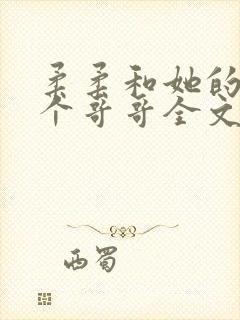 柔柔和她的
个哥哥全文
西蜀